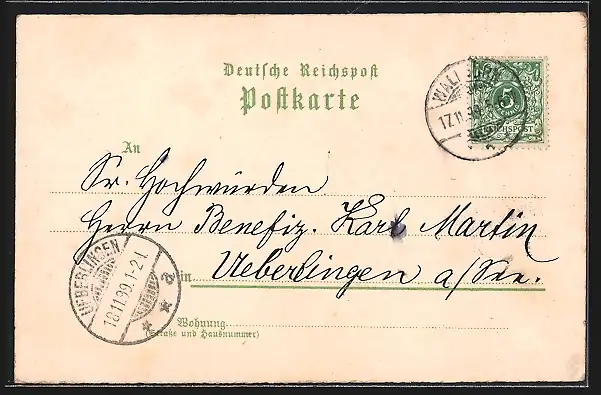 Deutsche Reichspost
Postkarte
5
REICHSPOST
17.11.99
An
Sr. Hochwürden
Herrn Benefiz. Karl Martin
in Ueberlingen a/See.
UEBERLINGEN
18.11.99.1-2N
* * a
Wohnung
(Straße und Hausnummer)